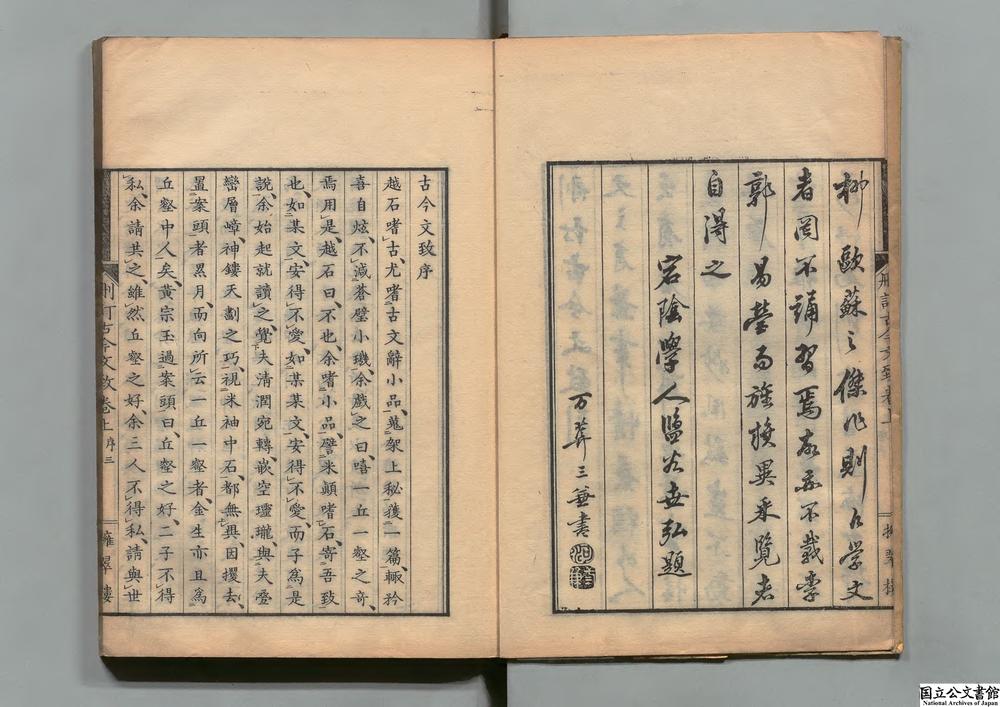 柳歐蘇之傑作則凡學文
者罔不誦習焉故亦不載李
郭易營而旌旗異采覽者
自得之
宕陰學人鹽谷世弘題
万葊三兼書
古今文致序
越石嗜古尤嗜古文辭小品蒐架上秘獲一篇輙矜
喜自炫不減蒼璧小璣余戲之曰嘻一丘一壑之奇
焉用是越石曰不也余嗜小品譬米顛嗜石寄吾致
也如某文安得不愛如某某文安得不愛而子爲是
說余始起就讀之覺夫清潤宛轉嵌空瓏與夫奇
巒層嶂神鏤天劃之巧視米袖中石都無異因攫去
置案頭者累月而向所云一丘一壑者金生亦且爲
丘壑中人矣黃宗玉過案頭曰丘壑之好二子不得
私余請共之雖然丘壑之好余三人不得私請與世
刪訂古今文致卷上 序三
擁翠樓
国立公文書館
National Archives of Japan